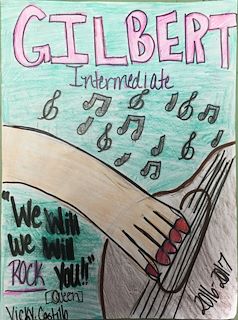 GILBERT
Intermediate
"We Will
We Will
ROCK You!!"
(Queen)
2016-2017
Vicky Castillo